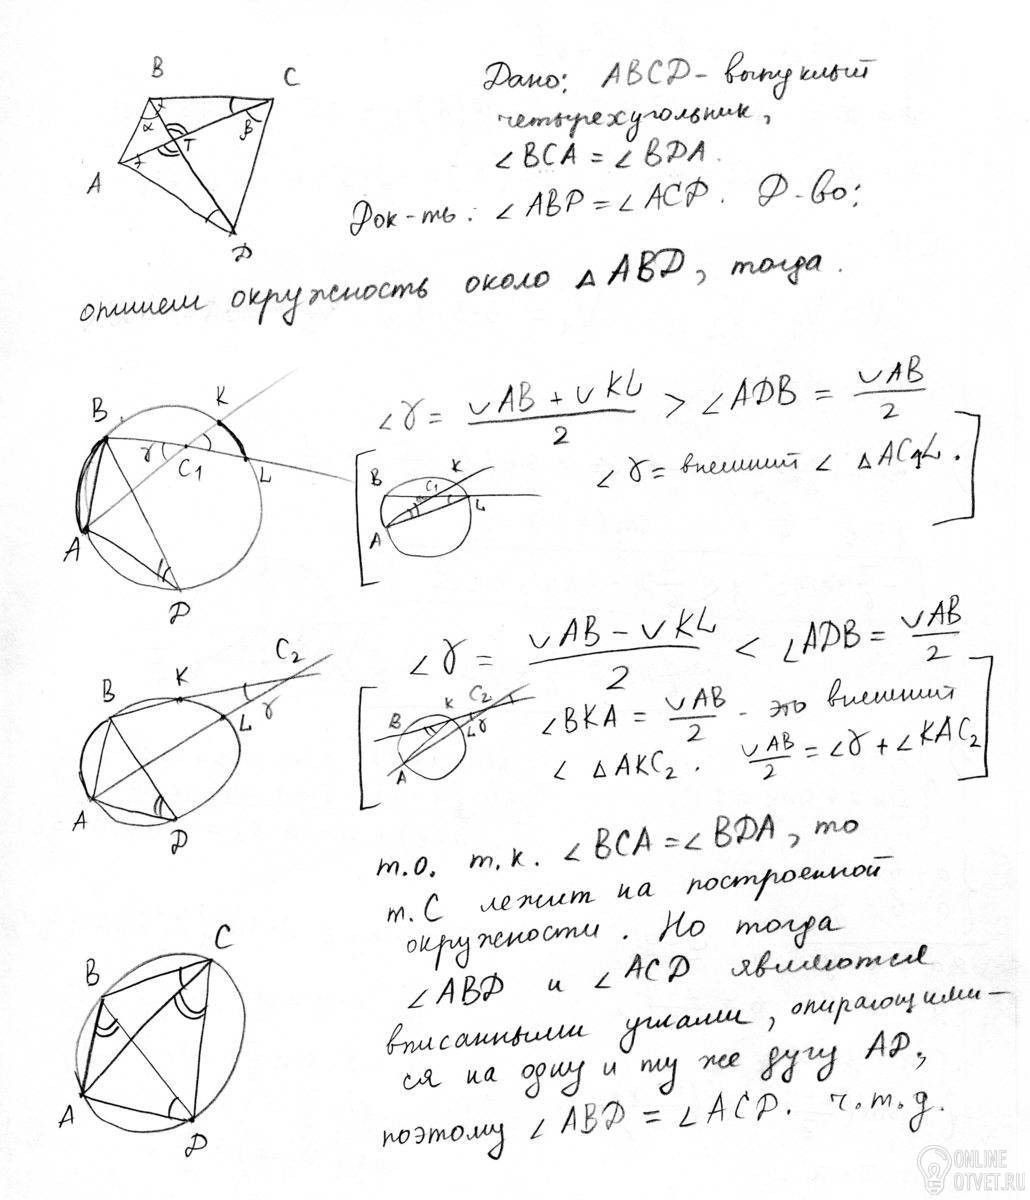 B
C
α
β
T
A
D
Дано: ABCD - выпуклый
четырехугольник,
∠BCA = ∠BDA.
Док-ть: ∠ABD = ∠ACD. Д-во:
опишем окружность около △ABD, тогда.
B
K
γ
C₁
L
A
D
∠γ = (◡AB + ◡KL)/2 > ∠ADB = ◡AB/2
[ ∠γ = внешний ∠ △AC₁L. ]
B
C₁
K
L
A
B
K
C₂
L
γ
A
D
∠γ = (◡AB - ◡KL)/2 < ∠ADB = ◡AB/2
[ ∠BKA = ◡AB/2 - это внешний
∠ △AKC₂. ◡AB/2 = ∠γ + ∠KAC₂ ]
B
K
C₂
L
γ
A
т.о. т.к. ∠BCA = ∠BDA, то
т. C лежит на построенной
окружности. Но тогда
∠ABD и ∠ACD являются
вписанными углами, опирающими-
ся на одну и ту же дугу AD,
поэтому ∠ABD = ∠ACD. ч.т.д.
B
C
A
D
ONLINE
OTVET.RU